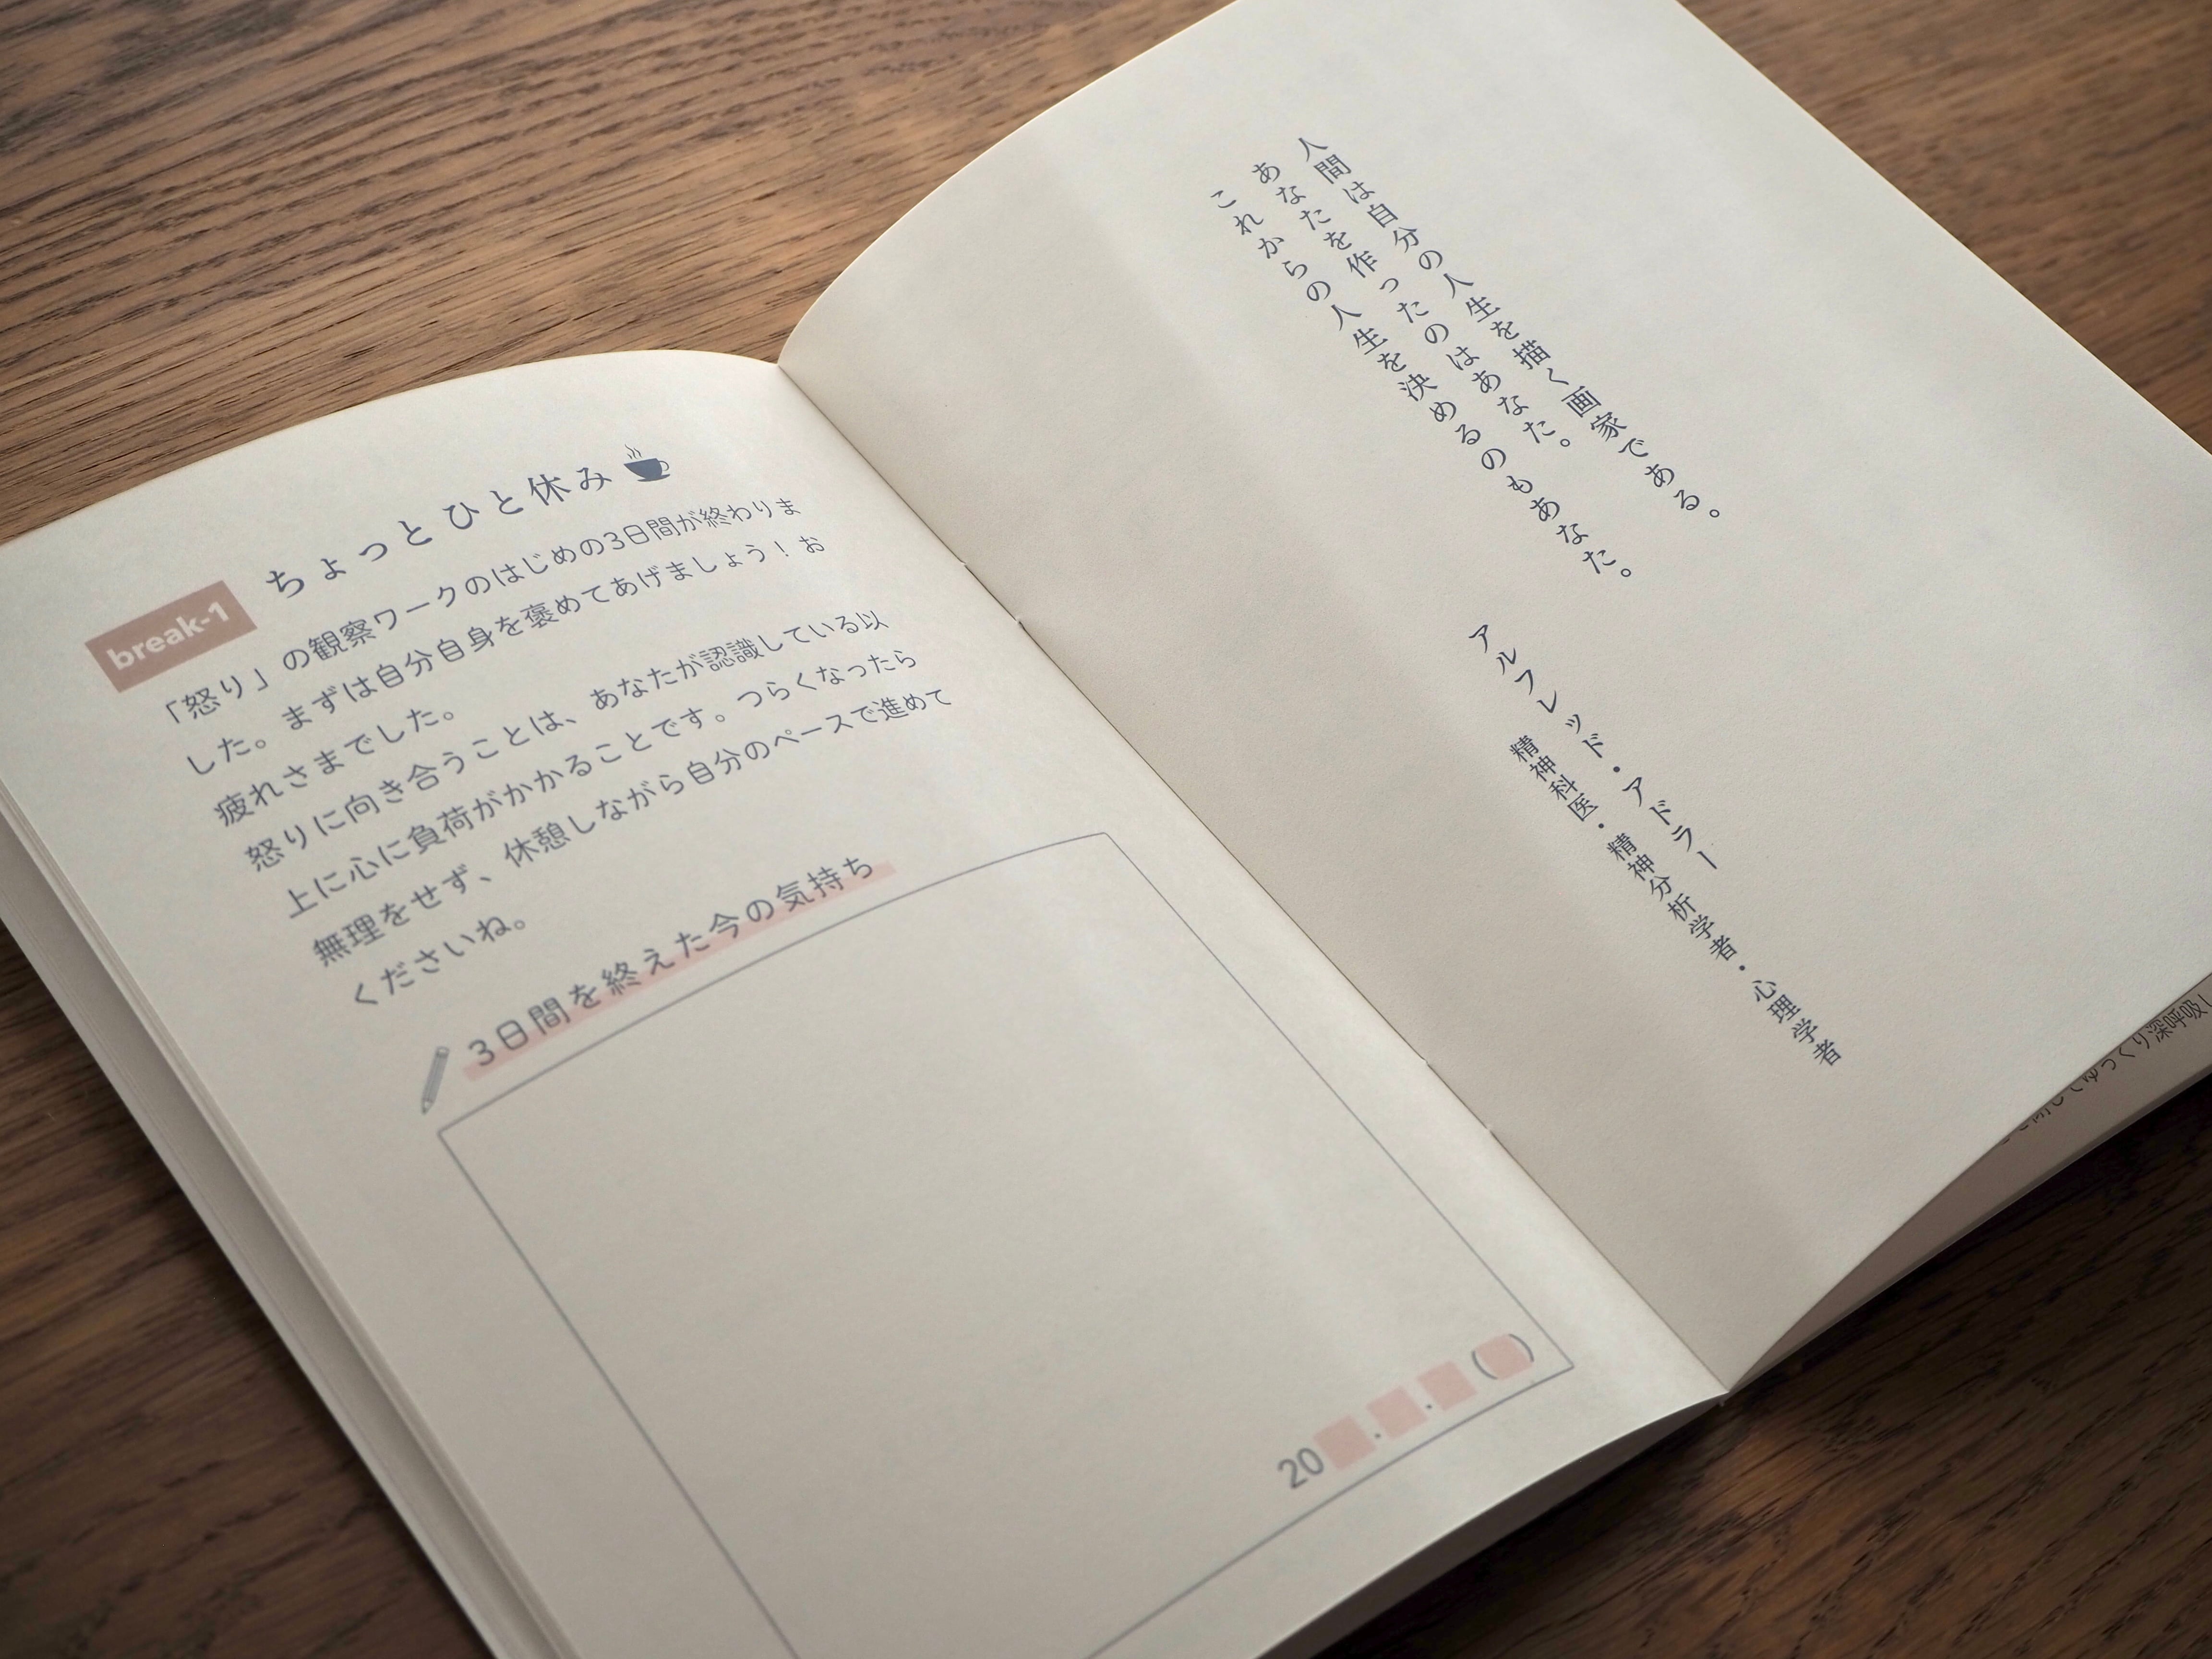 break-1
ちょっとひと休み
「怒り」の観察ワークのはじめの3日間が終わりま
した。まずは自分自身を褒めてあげましょう！お
疲れさまでした。
怒りに向き合うことは、あなたが認識している以
上に心に負荷がかかることです。つらくなったら
無理をせず、休憩しながら自分のペースで進めて
くださいね。
3日間を終えた今の気持ち
20 . . ( )
人間は自分の人生を描く画家である。
あなたを作ったのはあなた。
これからの人生を決めるのもあなた。
アルフレッド・アドラー
精神科医・精神分析学者・心理学者
てゆっくり深呼吸し